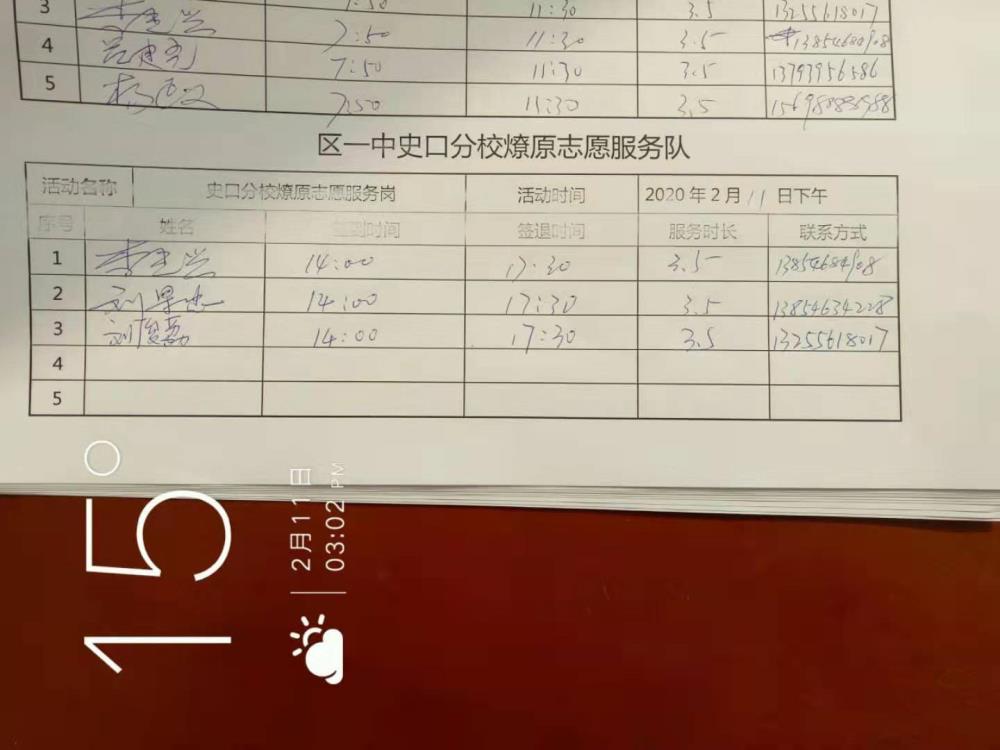 3 7:50 11:30 3.5 13255618017
4 7:50 11:30 3.5 13854684908
7:50 11:30 3.5 13793956586
5 7:50 11:30 3.5 15698888988
区一中史口分校燎原志愿服务队
活动名称 史口分校燎原志愿服务岗 活动时间 2020年2月11日下午
序号 姓名 签到时间 签退时间 服务时长 联系方式
1 14:00 17:30 3.5 13854684908
2 14:00 17:30 3.5 13854634228
3 刘俊磊 14:00 17:30 3.5 13255618017
4
5
15°
2月11日
03:02 PM